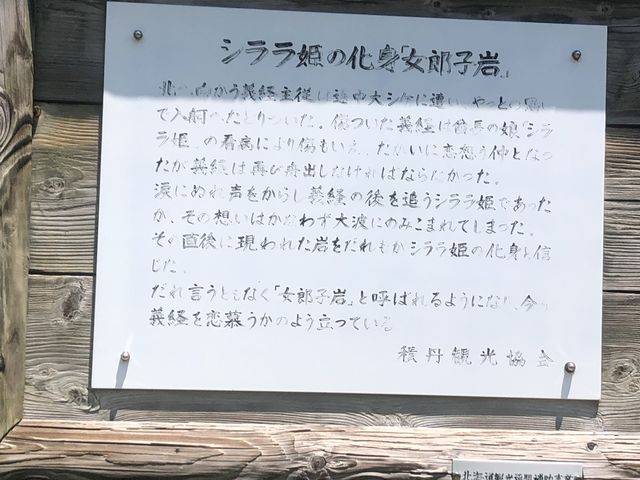 シララ姫の化身「女郎子岩」
北へ向かう義経主従は途中大シケに遭い、やっとの思い
で入舸へたどりついた。傷ついた義経は酋長の娘「シラ
ラ姫」の看病により傷もいえ、たがいに恋想う仲となっ
たが義経は再び舟出しなければならなかった。
涙にぬれ声をからし義経の後を追うシララ姫であった
が、その想いはかなわず大波にのみこまれてしまった。
その直後に現われた岩をだれもがシララ姫の化身と信
じた。
だれ言うともなく「女郎子岩」と呼ばれるようになり、今も
義経を恋慕うかのよう立っている
積丹観光協会
北海道観光施設補助事業